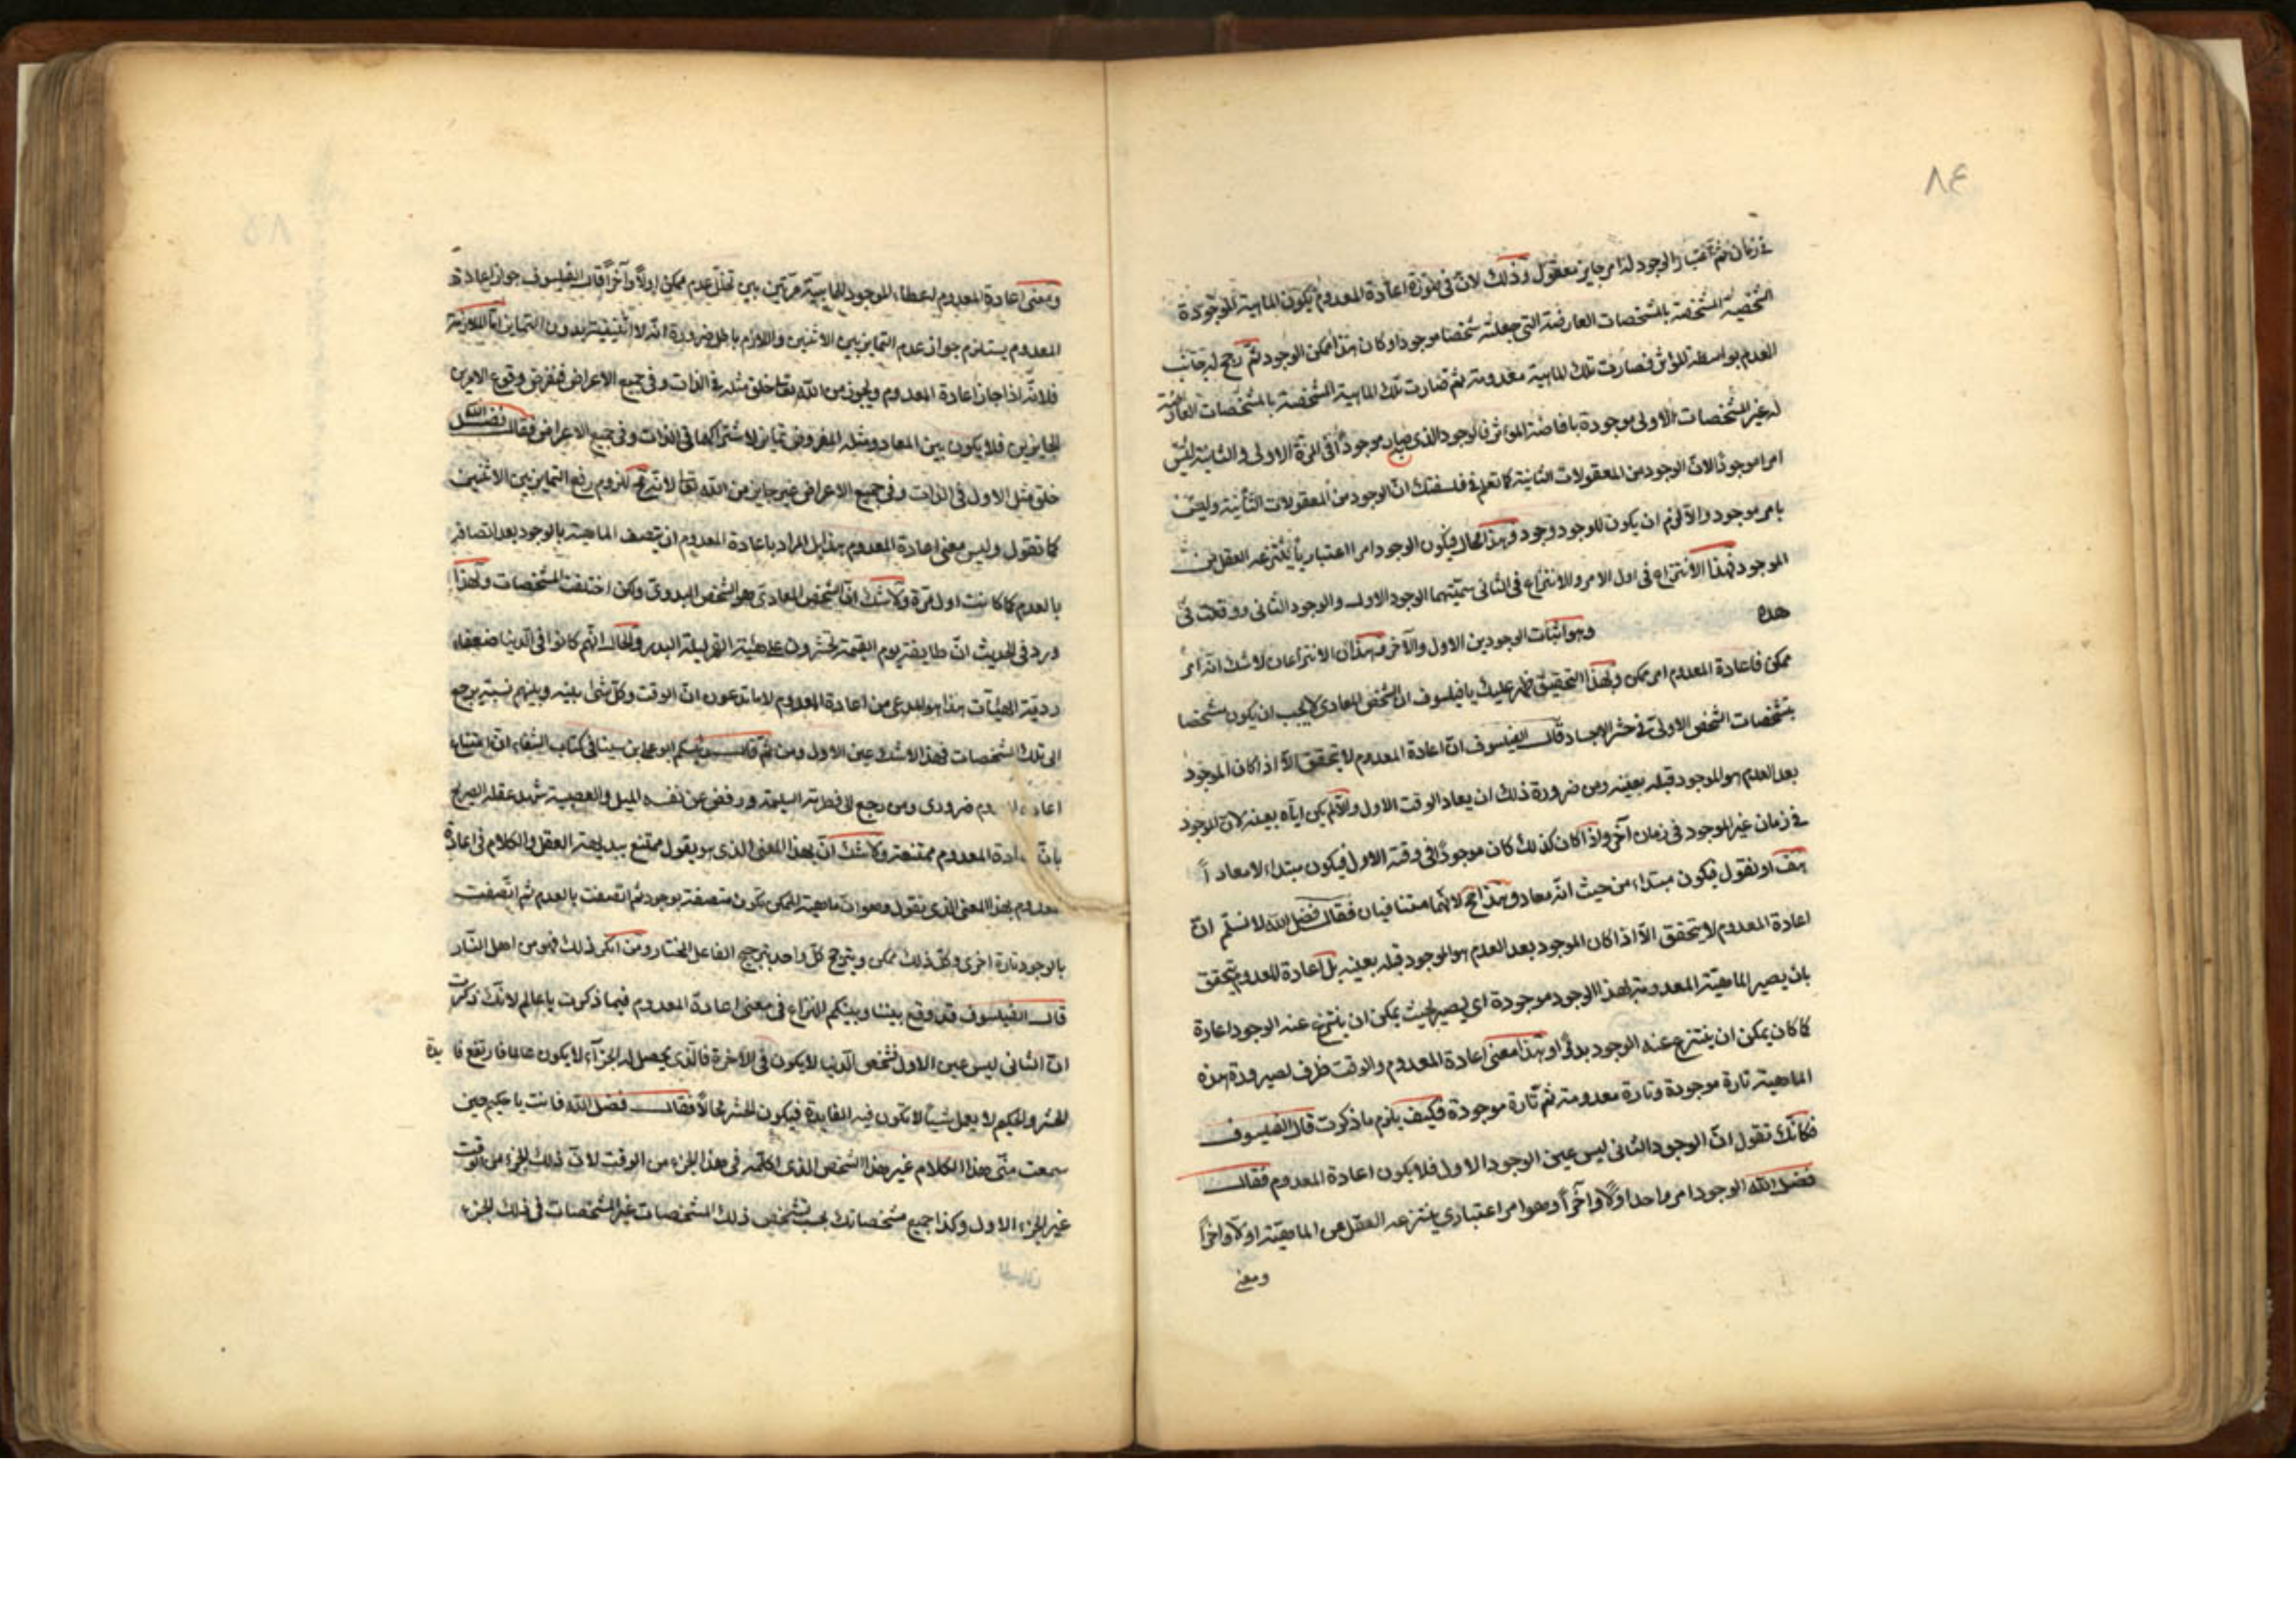 ٨٤
في زمان ثم اعتبار الوجود له امر جايز معقول وذلك لان في صورة اعادة المعدوم يكون الماهية الموجودة
الشخصية المشخصة بالمشخصات العارضة التي جعلته شخصا موجودا وكان هذا ممكن الوجود ثم رجح له جانب
العدم بواسطة المؤثر فصارت تلك الماهية معدومة ثم صارت تلك الماهية المشخصة بالمشخصات العارضة
له غير المشخصات الاولى موجودة بافاضة المؤثر فالوجود الذي صار موجودا في المرة الاولى والثانية ليس
امرا موجودا لان الوجود من المعقولات الثانية كما تعلم في فلسفتك ان الوجود من المعقولات الثانية وليس
بامر موجود والا لزم ان يكون للوجود وجود وهذا محال فيكون الوجود امرا اعتباريا ينتزعه العقل من
الموجود فهذا الانتزاع في اول الامر والانتزاع في الثاني سميتهما الوجود الاول والوجود الثاني وقلت في
هذه وهو اثبات الوجودين الاول والآخر فهذان الانتزاعان لا شك انه امر
ممكن فاعادة المعدوم امر ممكن وبهذا التحقيق ظهر عليك يا فيلسوف ان الشخص المعادي لا يجب ان يكون مشخصا
بتشخصات الشخص الاولى في حشر الاجساد قال الفيلسوف ان اعادة المعدوم لا يتحقق الا اذا كان الموجود
بعد العدم هو الموجود قبله بعينه ومن ضرورة ذلك ان يعاد الوقت الاول والا لم يكن اياه بعينه لان الموجود
في زمان غير الموجود في زمان آخر واذا كان كذلك كان موجودا في وقته الاول فيكون مبتداء لا معادا
هف او نقول فيكون مبتداء من حيث انه معاد وهذا مح لانهما متنافيان فقال فضل الله لا نسلم ان
اعادة المعدوم لا يتحقق الا اذا كان الموجود بعد العدم هو الموجود قبله بعينه بل اعادة المعدوم يتحقق
بان يصير الماهية المعدومة بهذا الوجود موجودة اي يصير بحيث يمكن ان ينتزع عنه الوجود اعادة
كما كان يمكن ان ينتزع عنه الوجود بدؤا وهذا معنى اعادة المعدوم والوقت ظرف لصيرورة هذه
الماهية تارة موجودة وتارة معدومة ثم تارة موجودة فكيف يلزم ما ذكرت قال الفيلسوف
فكانك تقول ان الوجود الثاني ليس عين الوجود الاول فلا يكون اعادة المعدوم فقال
فضل الله الوجود امر واحد اولا وآخرا وهو امر اعتباري ينتزعه العقل من الماهية اولا واخرا
ومعنى
٨٥
ومعنى اعادة المعدوم اعطاء الموجود الماهية مرتين بين تخلل عدم ممكن اولا وآخرا قال الفيلسوف جواز اعادة
المعدوم يستلزم جواز عدم التمايز بين الاثنين واللازم باطل ضرورة انه لا اثنينية بدون التمايز اما الملازمة
فلانه اذا جاز اعادة المعدوم ويجوز من الله تعالى خلق مثله في الذات وفي جميع الاعراض فنفرض وقوع الامرين
الجايزين فلا يكون بين المعاد ومثله المفروض تمايز لاشتراكهما في الذات وفي جميع الاعراض فقال فضل الله
خلق مثل الاول في الذات وفي جميع الاعراض غير جايز من الله تعالى لانه للزوم رفع التمايز بين الاثنين
كما تقول وليس معنى اعادة المعدوم هذا بل المراد باعادة المعدوم ان يتصف الماهية بالوجود بعد اتصافه
بالعدم كما كانت اول مرة ولا شك ان الشخص المعادي هو الشخص البدوي ولكن اختلفت المشخصات ولهذا
ورد في الحديث ان طايفة يوم القيمة تحشرون على هيئة القمر ليلة البدر والحال انهم كانوا في الدنيا ضعفاء
ردية الهيئات هذا هو المدعى من اعادة المعدوم لا ما تدعون ان الوقت وكل شئ بعينه ويلزم نسبته يرجع
الى تلك الشخصات فهذا لا شك عين الاول ومن ثم قال رئيسكم ابو علي بن سينا في كتاب الشفاء ان امتناع
اعادة المعدوم ضروري ومن رجع الى فطرته السليمة ورفض عن نفسه الميل والعصبية شهد عقله الصريح
بان اعادة المعدوم ممتنعة ولا شك ان بهذا المعنى الذي هو يقول ممتنع ببديهة العقل والكلام في اعادة
المعدوم بهذا المعنى الذي نقول وهو ان ماهية الممكن تكون متصفة بوجود ثم اتصفت بالعدم ثم اتصفت
بالوجود تارة اخرى وكل ذلك ممكن ويترجح كل واحد بترجيح الفاعل المختار ومن انكر ذلك فهو من اهل النار
قال الفيلسوف قد وقع بيننا وبينكم النزاع في معنى اعادة المعدوم فيما ذكرت يا عالم لانك ذكرت
ان الثاني ليس عين الاول فشخص الدنيا لا يكون في الآخرة فالذي يحصل له الجزاء لا يكون عاملا فارتفع فايدة
الحشر والحكيم لا يعمل شيئا لا تكون فيه الفايدة فيكون الحشر محالا فقال فضل الله فانت يا حكيم حين
سمعت مني هذا الكلام غير هذا الشخص الذي اكلمه في هذا الجزء من الوقت لان ذلك الجزء من الوقت
غير الجزء الاول وكذا جميع مشخصاتك بحسب تشخص ذلك المشخصات غير المشخصات في ذلك الجزء